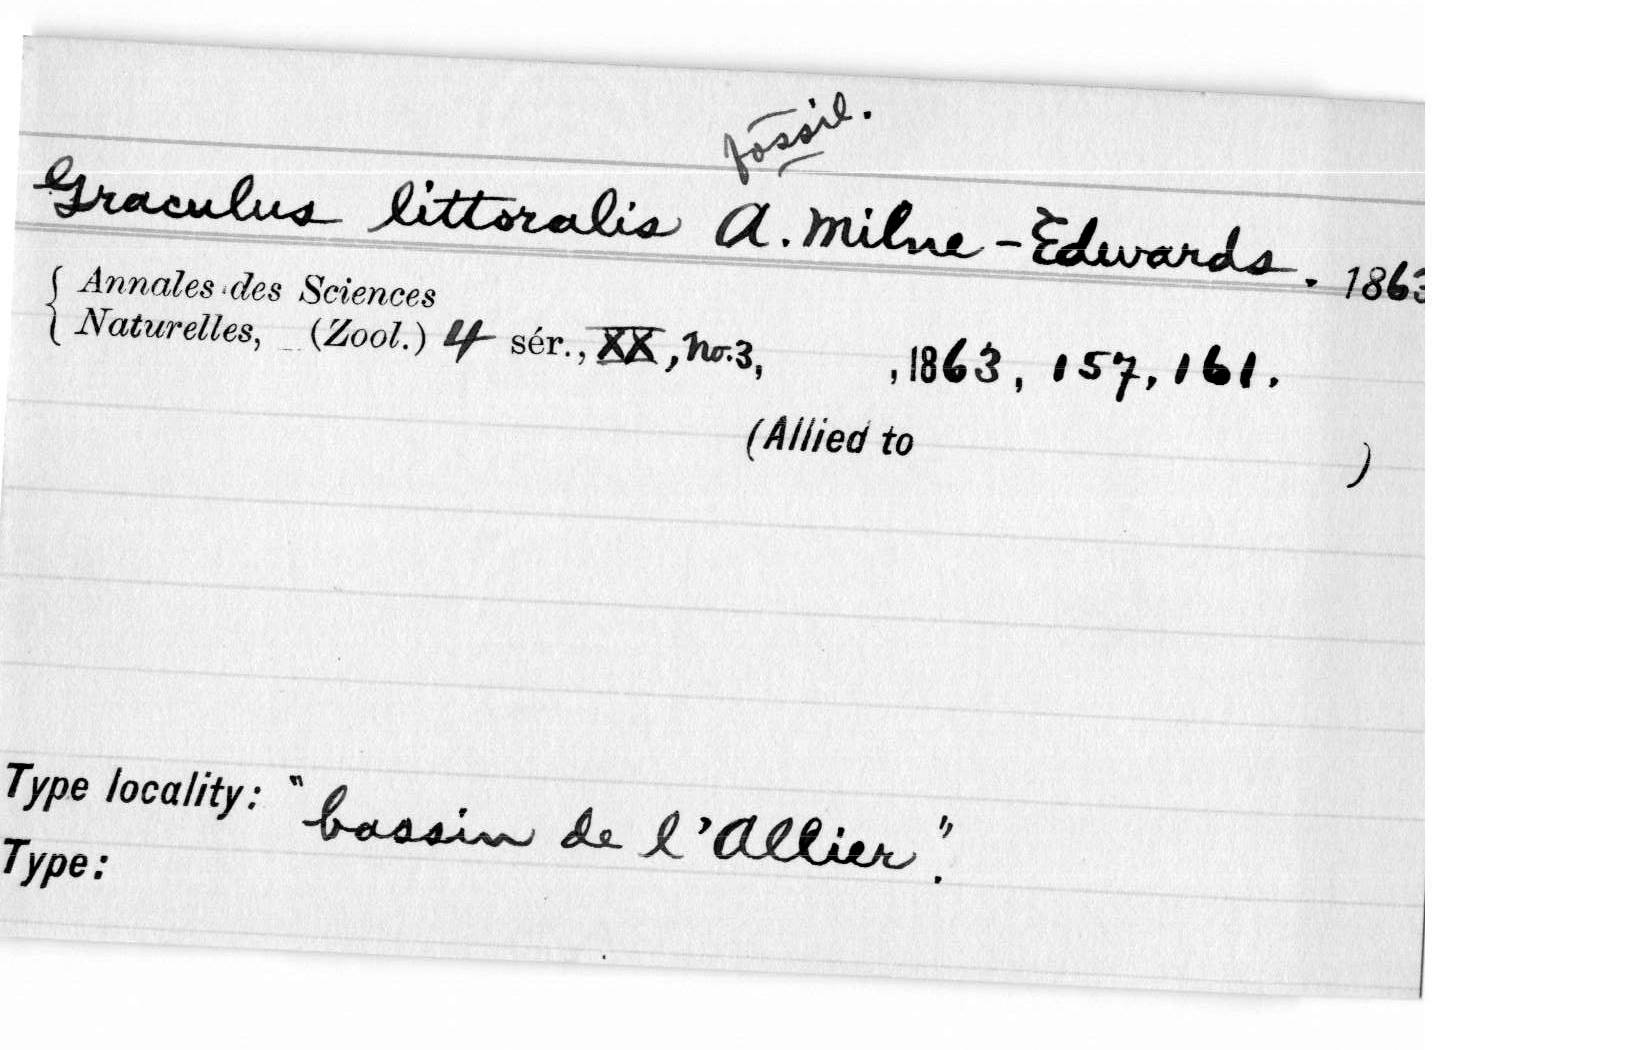 fossil.
Graculus littoralis A. Milne-Edwards. 1863
Annales des Sciences
Naturelles, (Zool.) 4 sér., XX, No. 3, , 1863, 157, 161.
(Allied to )
Type locality: "bassin de l'Allier".
Type: